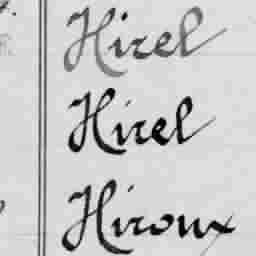 Hirel
Hirel
Hiroux